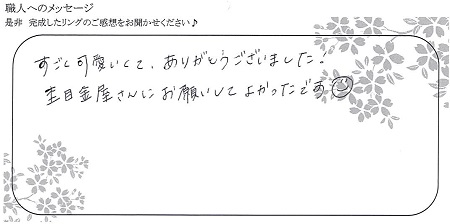 職人へのメッセージ
是非 完成したリングのご感想をお聞かせください♪
すごく可愛いくて、ありがとうございました!
杢目金屋さんにお願いしてよかったです☺